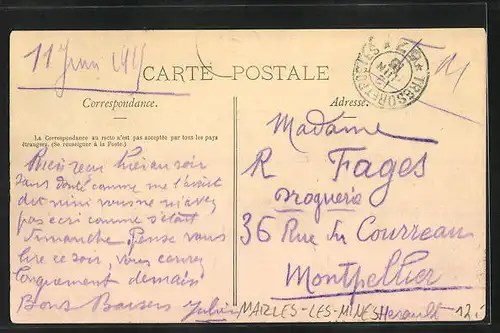 11 Juin 1915
F M
TRESOR ET POSTES
CARTE POSTALE
Correspondance.
Adresse.
La Correspondance au recto n'est pas acceptée par tous les pays
étrangers. (Se renseigner à la Poste.)
Rien reçu hier au soir
sans doute comme me l'avait
dit mimi vous ne m'avez
pas écri comme s'était
Dimanche. Pense vous
lire ce soir, vous écrirez
longuement demain
Bons Baisers Julien
Madame
R Fages
Droguerie
36 Rue du Courreau
Montpellier
Herault
MARLES-LES-MINES
12.